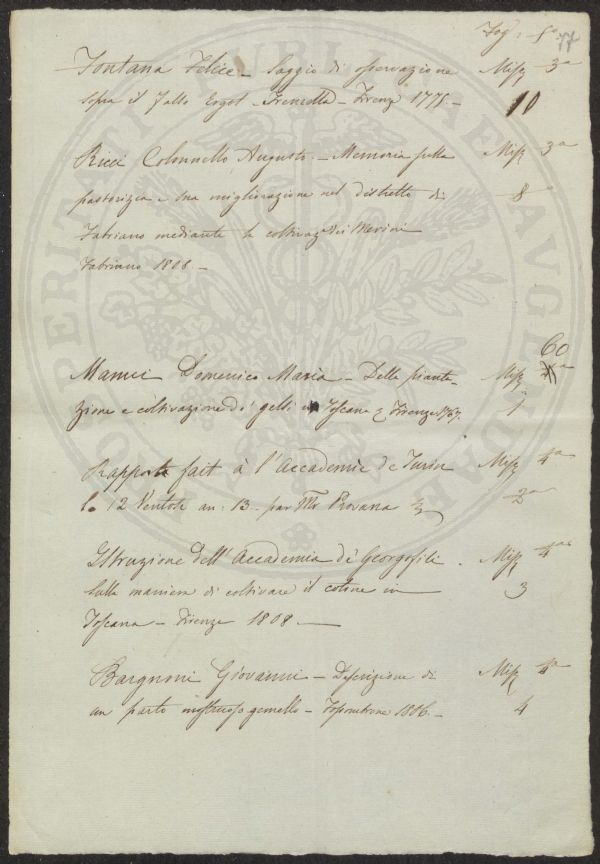 Fog: 5°: 77
Fontana Felice – Saggio di osservazione Misc 3a
sopra il Falso Ergot – Tremella – Firenze 1775 – 10
Ricci Colonnello Augusto – Memoria sulla Misc 3a
pastorizia e sua migliorazione nel distretto di 8
Fabriano mediante la coltivaz. dei Merini
Fabriano 1808 –
60
Manni Domenico Maria – Della pianta- Misc
zione e coltivazione di gelsi in Toscana Firenze 1767. 1
Rapporto fait à l'Accademie de Turin Misc 4a
le 12 Ventose an: 13 – par Mr Provana 2a
Istruzione dell'Accademia de' Georgofili. Misc 4a
sulla maniera di coltivare il cotone in 3
Toscana – Firenze 1808 –
Bargnoni Giovanni – Descrizione di Misc 4a
un parto mostruoso gemello – 1806 – 4
NOPERITATI PUBLICAE AUGENDAE